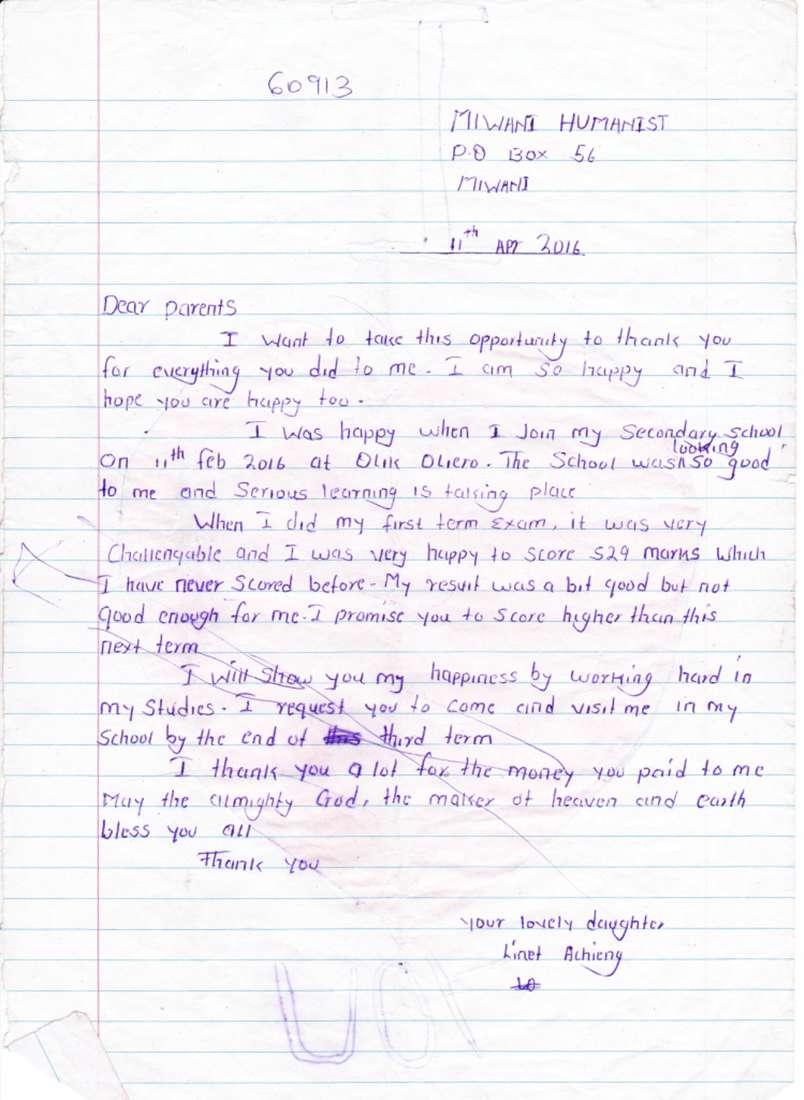 60913
MIWANI HUMANIST
P.O BOX 56
MIWANI
11th APR 2016
Dear parents
I want to take this opportunity to thank you
for everything you did to me. I am so happy and I
hope you are happy too.
I was happy when I Join my Secondary School
On 11th feb 2016 at OLIK OLIERO. The School was so looking good
to me and Serious learning is taking place
When I did my first term Exam, it was very
Challengable and I was very happy to score 529 marks which
I have never Scored before - My result was a bit good but not
good enough for me. I promise you to Score higher than this
next term
I will Show you my happiness by working hard in
my Studies. I request you to come and visit me in my
School by the end of third term
I thank you a lot for the money you paid to me
May the almighty God, the maker of heaven and earth
bless you all
Thank you
your lovely daughter
Linet Achieng